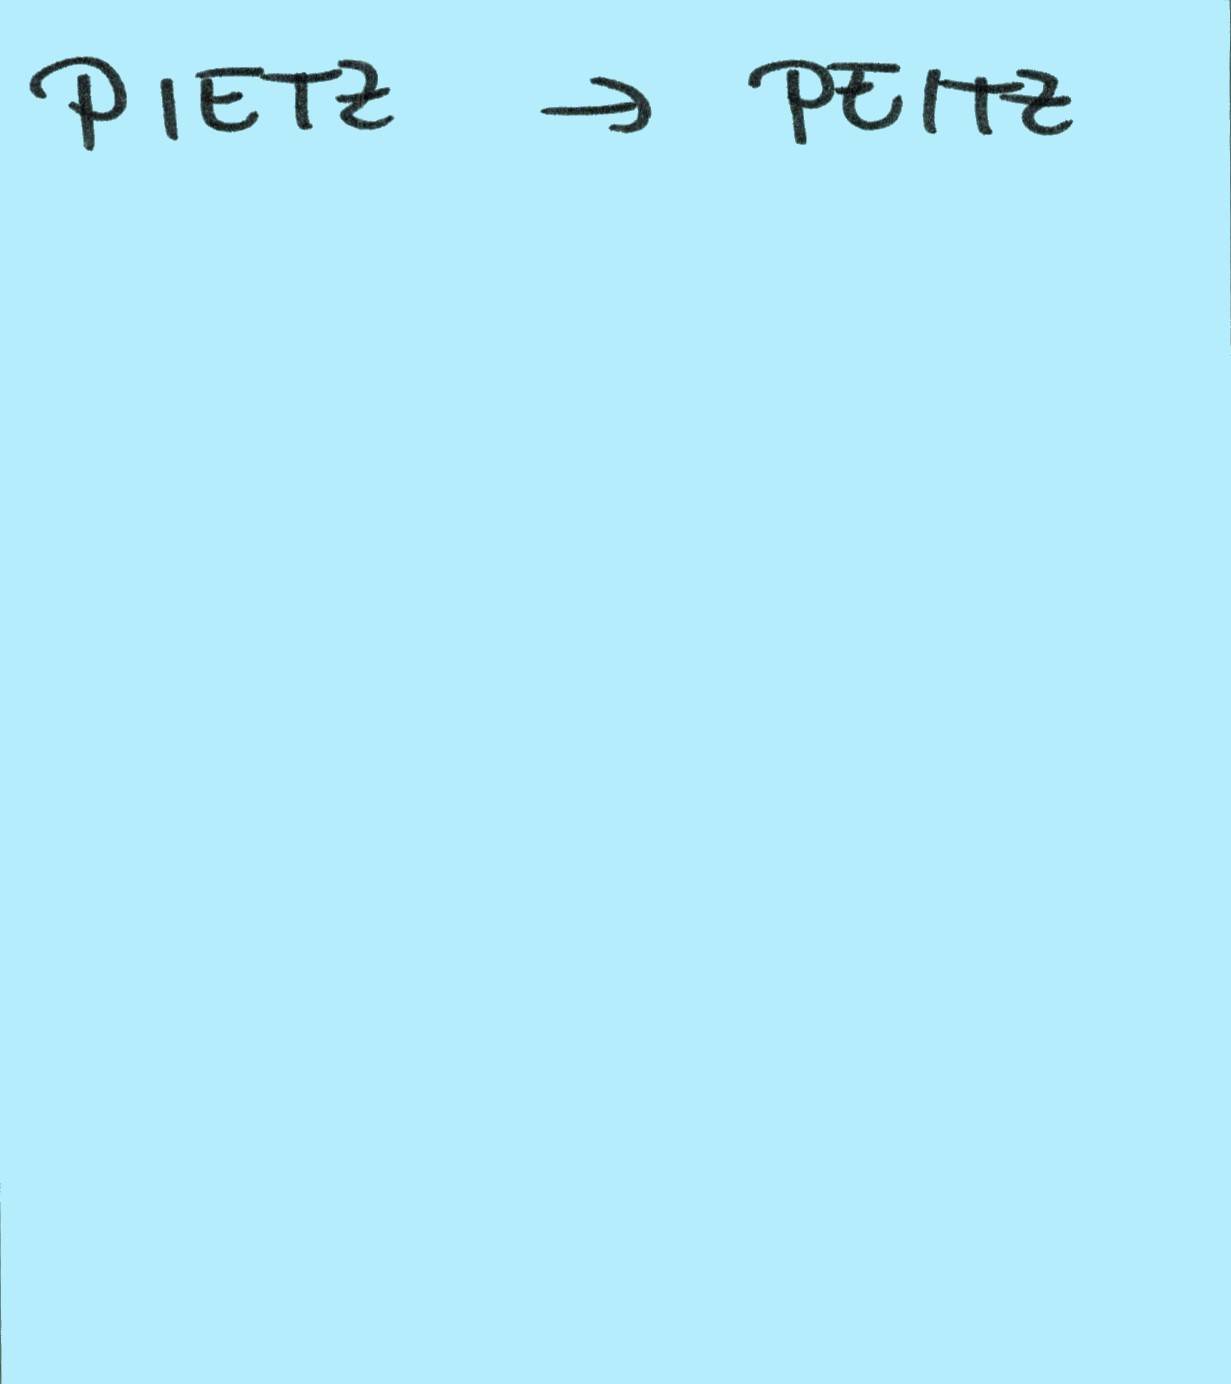 PIETZ → PEITZ